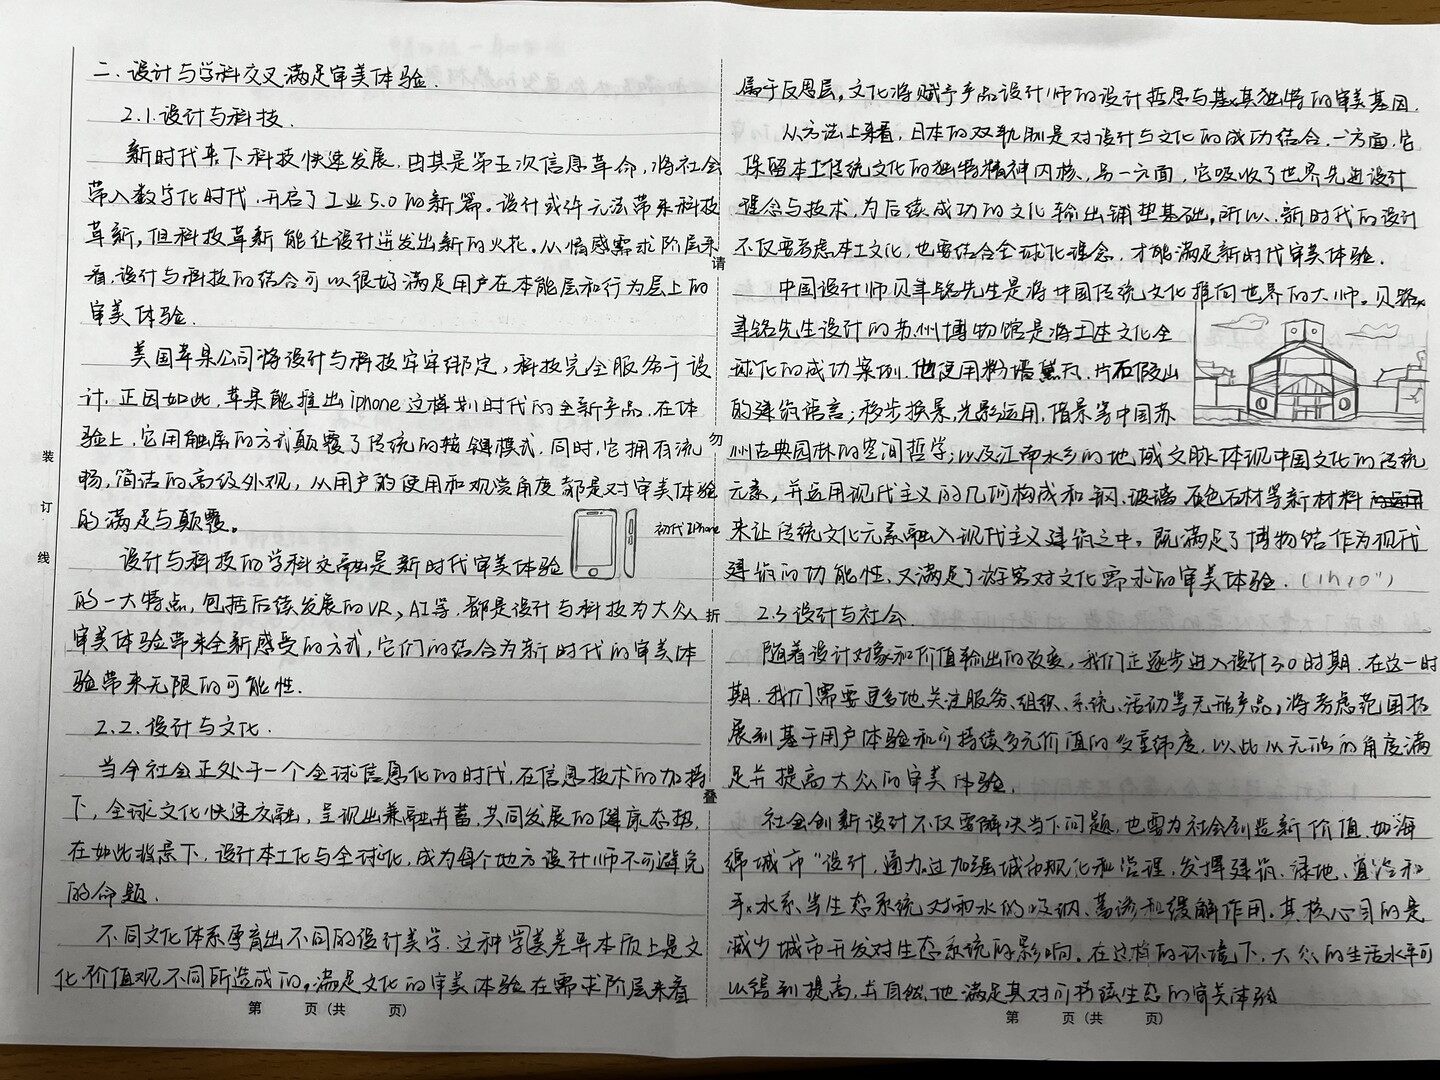 二.设计与学科交叉满足审美体验.
2.1.设计与科技.
新时代来下科技快速发展.由其是第五次信息革命,将社会
带入数字化时代.开启了工业5.0的新篇。设计或许无法带来科技
革新,但科技革新能让设计迸发出新的火花。从情感需求阶层来
看,设计与科技的结合可以很好满足用户在本能层和行为层上的
审美体验.
美国苹果公司将设计与科技牢牢绑定,科技完全服务于设
计.正因如此,苹果能推出iphone这样划时代的全新产品.在体
验上,它用触屏的方式颠覆了传统的按键模式.同时,它拥有流
畅,简洁的高级外观,从用户的使用和观赏角度都是对审美体验
的满足与颠覆。
初代iPhone
设计与科技的学科交融是新时代审美体验
的一大特点,包括后续发展的VR,AI等.都是设计与科技为大众
审美体验带来全新感受的方式,它们的结合为新时代的审美体
验带来无限的可能性.
2.2.设计与文化.
当今社会正处于一个全球信息化的时代,在信息技术的加持
下,全球文化快速交融,呈现出兼融并蓄,共同发展的健康态势,
在如此背景下,设计本土化与全球化,成为每个地方设计师不可避免
的命题.
不同文化体系孕育出不同的设计美学.这种学美差异本质上是文
化价值观不同所造成的。满足文化的审美体验在需求阶层来看
第 页(共 页)
装
订
线
请
勿
折
叠
属于反思层。文化将赋予产品设计师的设计哲思与其独特的审美基因.
从方法上来看,日本的双轨制是对设计与文化的成功结合.一方面.它
保留本土传统文化的独特精神内核,另一方面,它吸收了世界先进设计
理念与技术,为后续成功的文化输出铺垫基础。所以,新时代的设计
不仅要考虑本土文化,也要结合全球化理念,才能满足新时代审美体验.
中国设计师贝聿铭先生是将中国传统文化推向世界的大师。贝
聿铭先生设计的苏州博物馆是将本土文化全
球化的成功案例.他使用粉墙黛瓦,片石假山
的建筑语言;移步换景,光影运用,借景等中国苏
州古典园林的空间哲学;以及江南水乡的地域文脉体现中国文化的传统
元素,并运用现代主义的几何构成和钢、玻璃、石色石材等新材料
来让传统文化元素融入现代主义建筑之中。既满足了博物馆作为现代
建筑的功能性,又满足了游客对文化需求的审美体验.(1h10")
2.3设计与社会.
随着设计对象和价值输出的改变,我们正逐步进入设计3.0时期.在这一时
期.我们需要更多地关注服务、组织、系统、活动等无形产品,将考虑范围拓
展到基于用户体验和可持续多元价值的多重纬度,以此从无形的角度满
足并提高大众的审美体验.
社会创新设计不仅要解决当下问题,也要为社会创造新价值.如海
绵城市"设计,通过加强城市规化和治理,发挥建筑、绿地、道路和
水系等生态系统对雨水的吸纳、蓄渗和缓解作用.其核心目的是
减少城市开发对生态系统的影响。在这样的环境下,大众的生活水平可
以得到提高,大自然也满足其对可持续生态的审美体验
第 页(共 页)